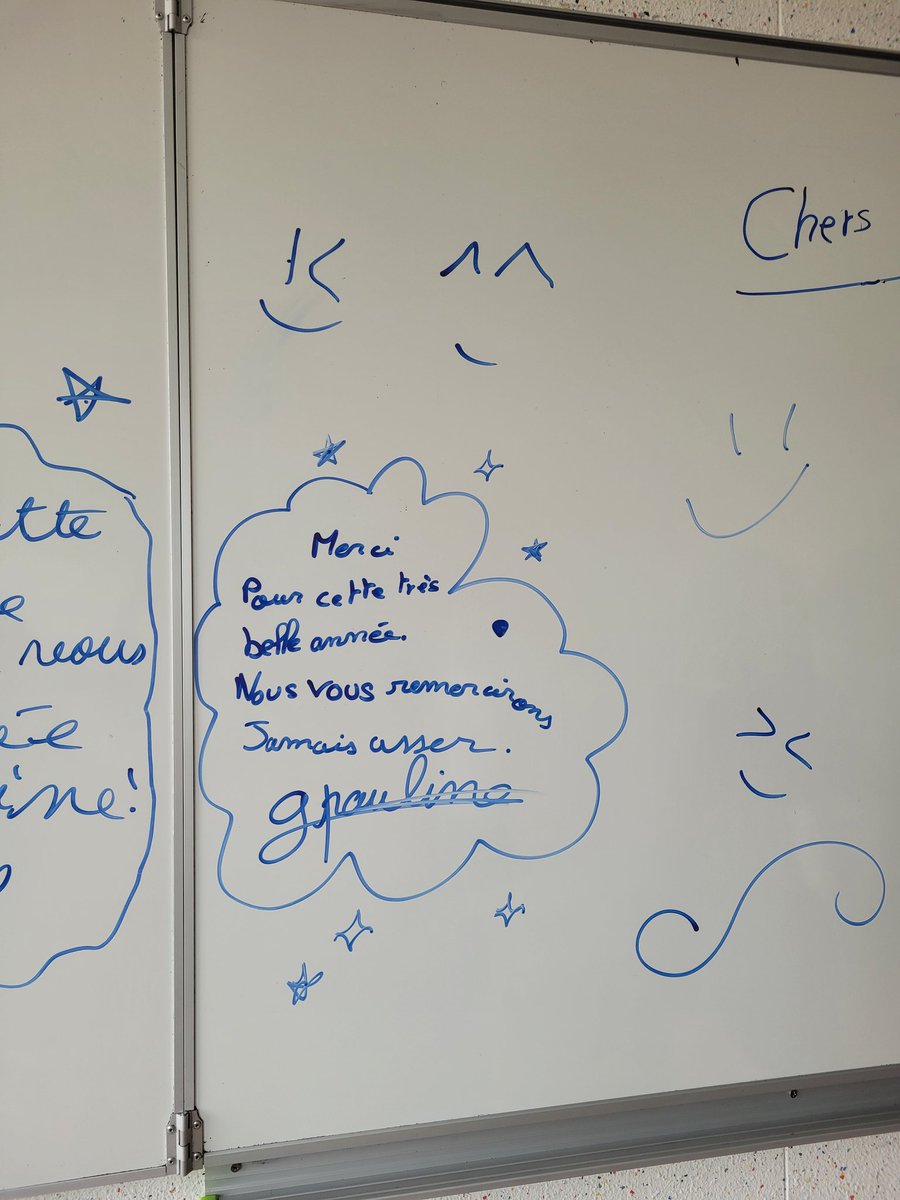 Chers
tte
e
nous
ée
ine!
Merci
Pour cette très
belle année.
Nous vous remercirons
Jamais asser.
gpaulino